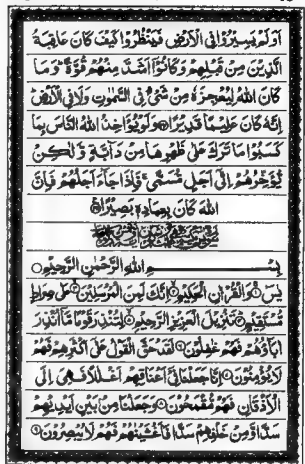 اَوَلَمْ يَسِيْرُوْا فِي الْاَرْضِ فَيَنْظُرُوْا كَيْفَ كَانَ عَاقِبَةُ
الَّذِيْنَ مِنْ قَبْلِهِمْ وَكَانُوْۤا اَشَدَّ مِنْهُمْ قُوَّةً ؕ وَمَا
كَانَ اللّٰهُ لِيُعْجِزَهٗ مِنْ شَيْءٍ فِي السَّمٰوٰتِ وَلَا فِي الْاَرْضِ ؕ
اِنَّهٗ كَانَ عَلِيْمًا قَدِيْرًا ۞ وَلَوْ يُؤَاخِذُ اللّٰهُ النَّاسَ بِمَا
كَسَبُوْا مَا تَرَكَ عَلٰى ظَهْرِهَا مِنْ دَآبَّةٍ وَّلٰكِنْ
يُّؤَخِّرُهُمْ اِلٰۤى اَجَلٍ مُّسَمًّى ۚ فَاِذَا جَآءَ اَجَلُهُمْ فَاِنَّ
اللّٰهَ كَانَ بِعِبَادِهٖ بَصِيْرًا ۞
بِسْمِ اللّٰهِ الرَّحْمٰنِ الرَّحِيْمِ ۞
يٰسٓ ۞ وَالْقُرْاٰنِ الْحَكِيْمِ ۞ اِنَّكَ لَمِنَ الْمُرْسَلِيْنَ ۞ عَلٰى صِرَاطٍ
مُّسْتَقِيْمٍ ۞ تَنْزِيْلَ الْعَزِيْزِ الرَّحِيْمِ ۞ لِتُنْذِرَ قَوْمًا مَّاۤ اُنْذِرَ
اٰبَآؤُهُمْ فَهُمْ غٰفِلُوْنَ ۞ لَقَدْ حَقَّ الْقَوْلُ عَلٰۤى اَكْثَرِهِمْ فَهُمْ
لَا يُؤْمِنُوْنَ ۞ اِنَّا جَعَلْنَا فِيْۤ اَعْنَاقِهِمْ اَغْلٰلًا فَهِيَ اِلَى
الْاَذْقَانِ فَهُمْ مُّقْمَحُوْنَ ۞ وَجَعَلْنَا مِنْۢ بَيْنِ اَيْدِيْهِمْ
سَدًّا وَّمِنْ خَلْفِهِمْ سَدًّا فَاَغْشَيْنٰهُمْ فَهُمْ لَا يُبْصِرُوْنَ ۞